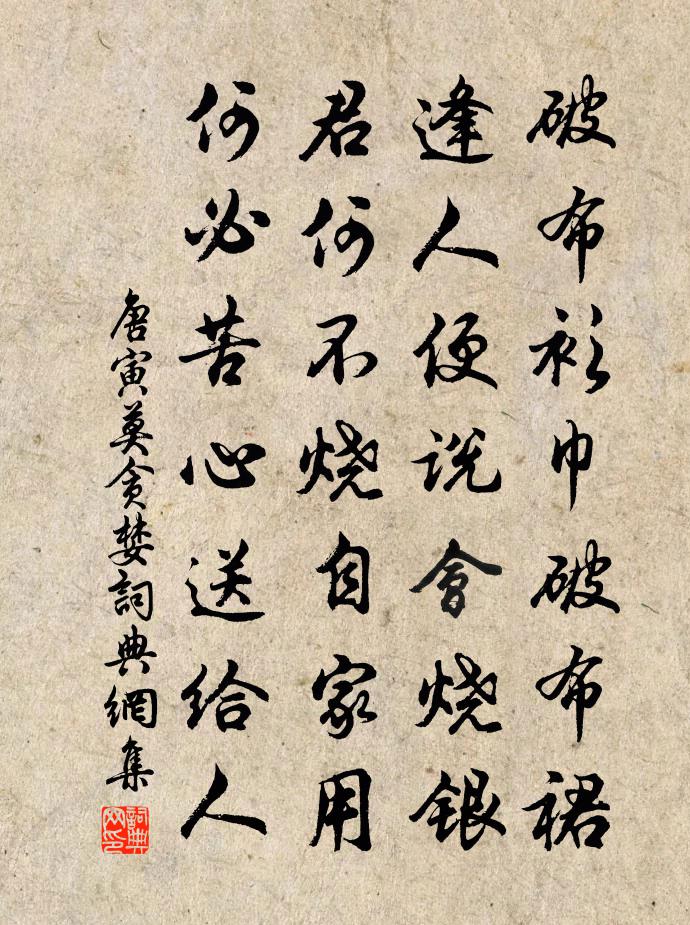 破布衫巾破布裙
逢人便说會烧银
君何不烧自家用
何必苦心送给人
唐寅莫贪婪詞典網集
詞典网印